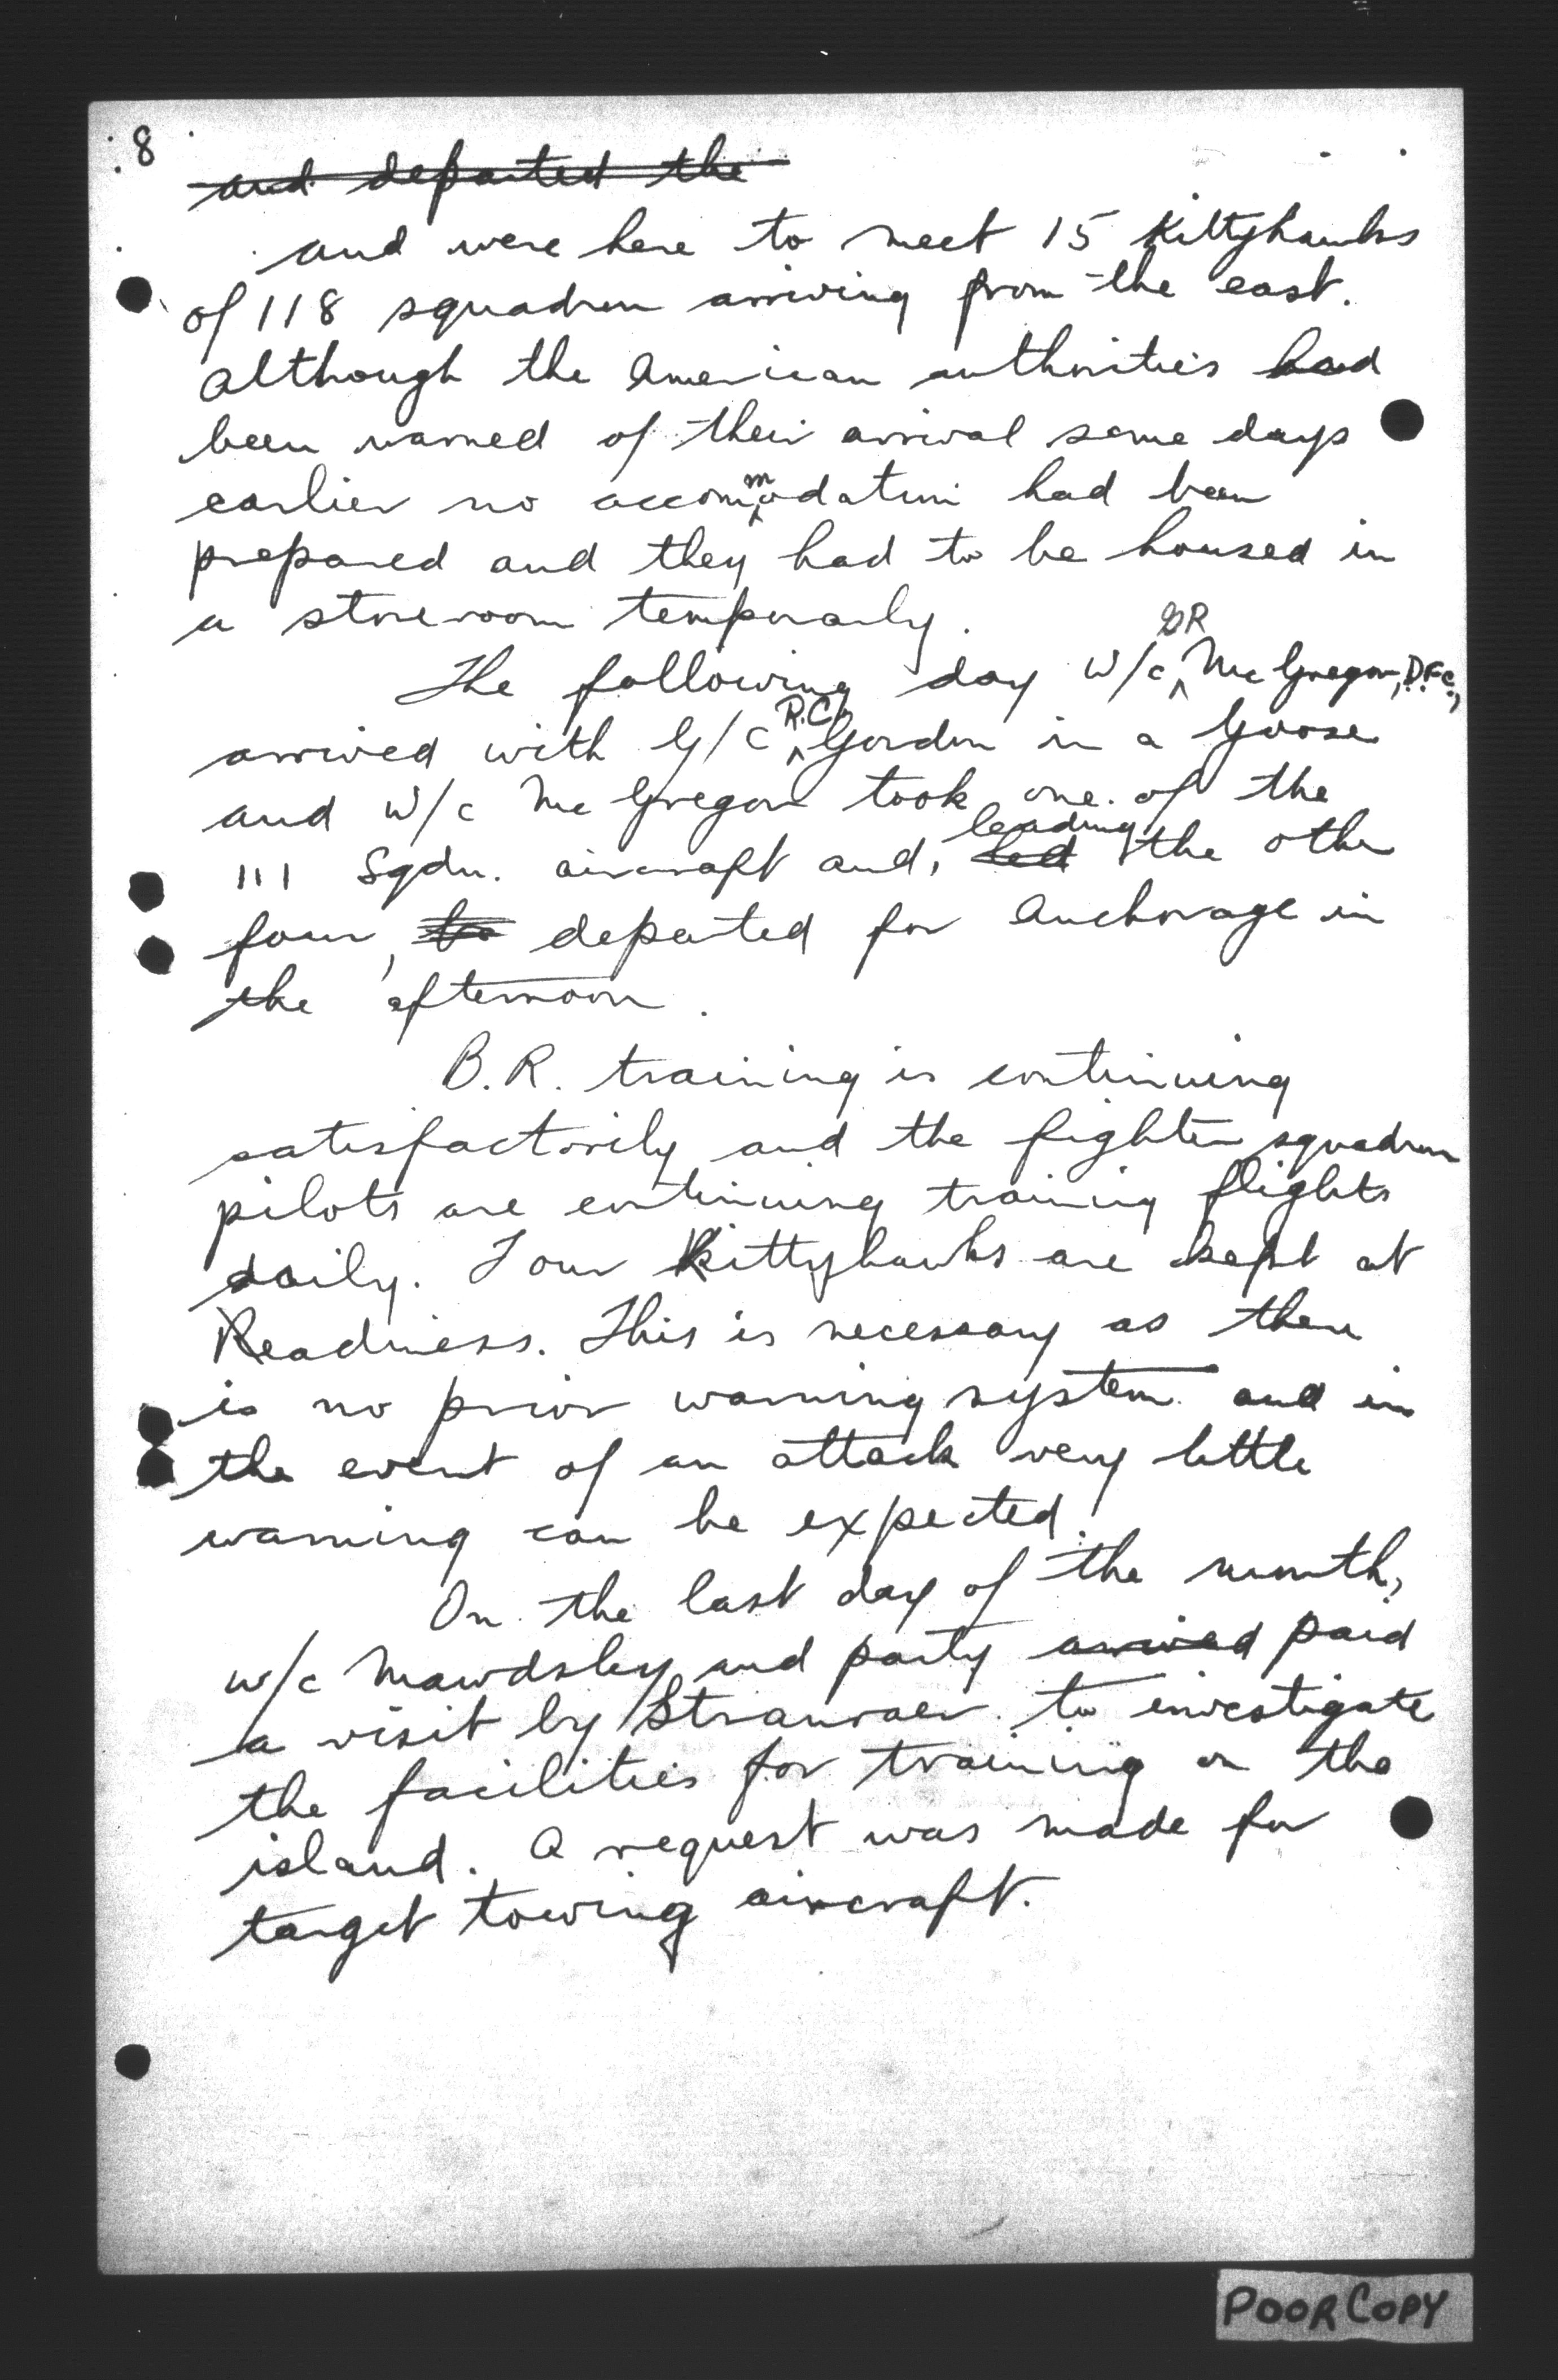 8
and departed the
and were here to meet 15 Kittyhawks
of 118 squadron arriving from the east.
Although the American authorities had
been warned of their arrival some days
earlier no accommodation had been
prepared and they had to be housed in
a storeroom temporarly.
The following day W/C GR McGregor, D.F.C.,
arrived with G/C R.C. Gordon in a Goose
and W/C McGregor took one of the
111 Sqdn. aircraft and, led leading the other
four, to departed for Anchorage in
the afternoon.
B.R. training is continuing
satisfactorily and the fighter squadron
pilots are continuing training flights
daily. Four Kittyhawks are kept at
Readiness. This is necessary as there
is no prior warning system and in
the event of an attack very little
warning can be expected.
On the last day of the month,
W/C Mawdsley and party arrived paid
a visit by Stranraer to investigate
the facilities for training on the
island. A request was made for
target towing aircraft.
POOR COPY